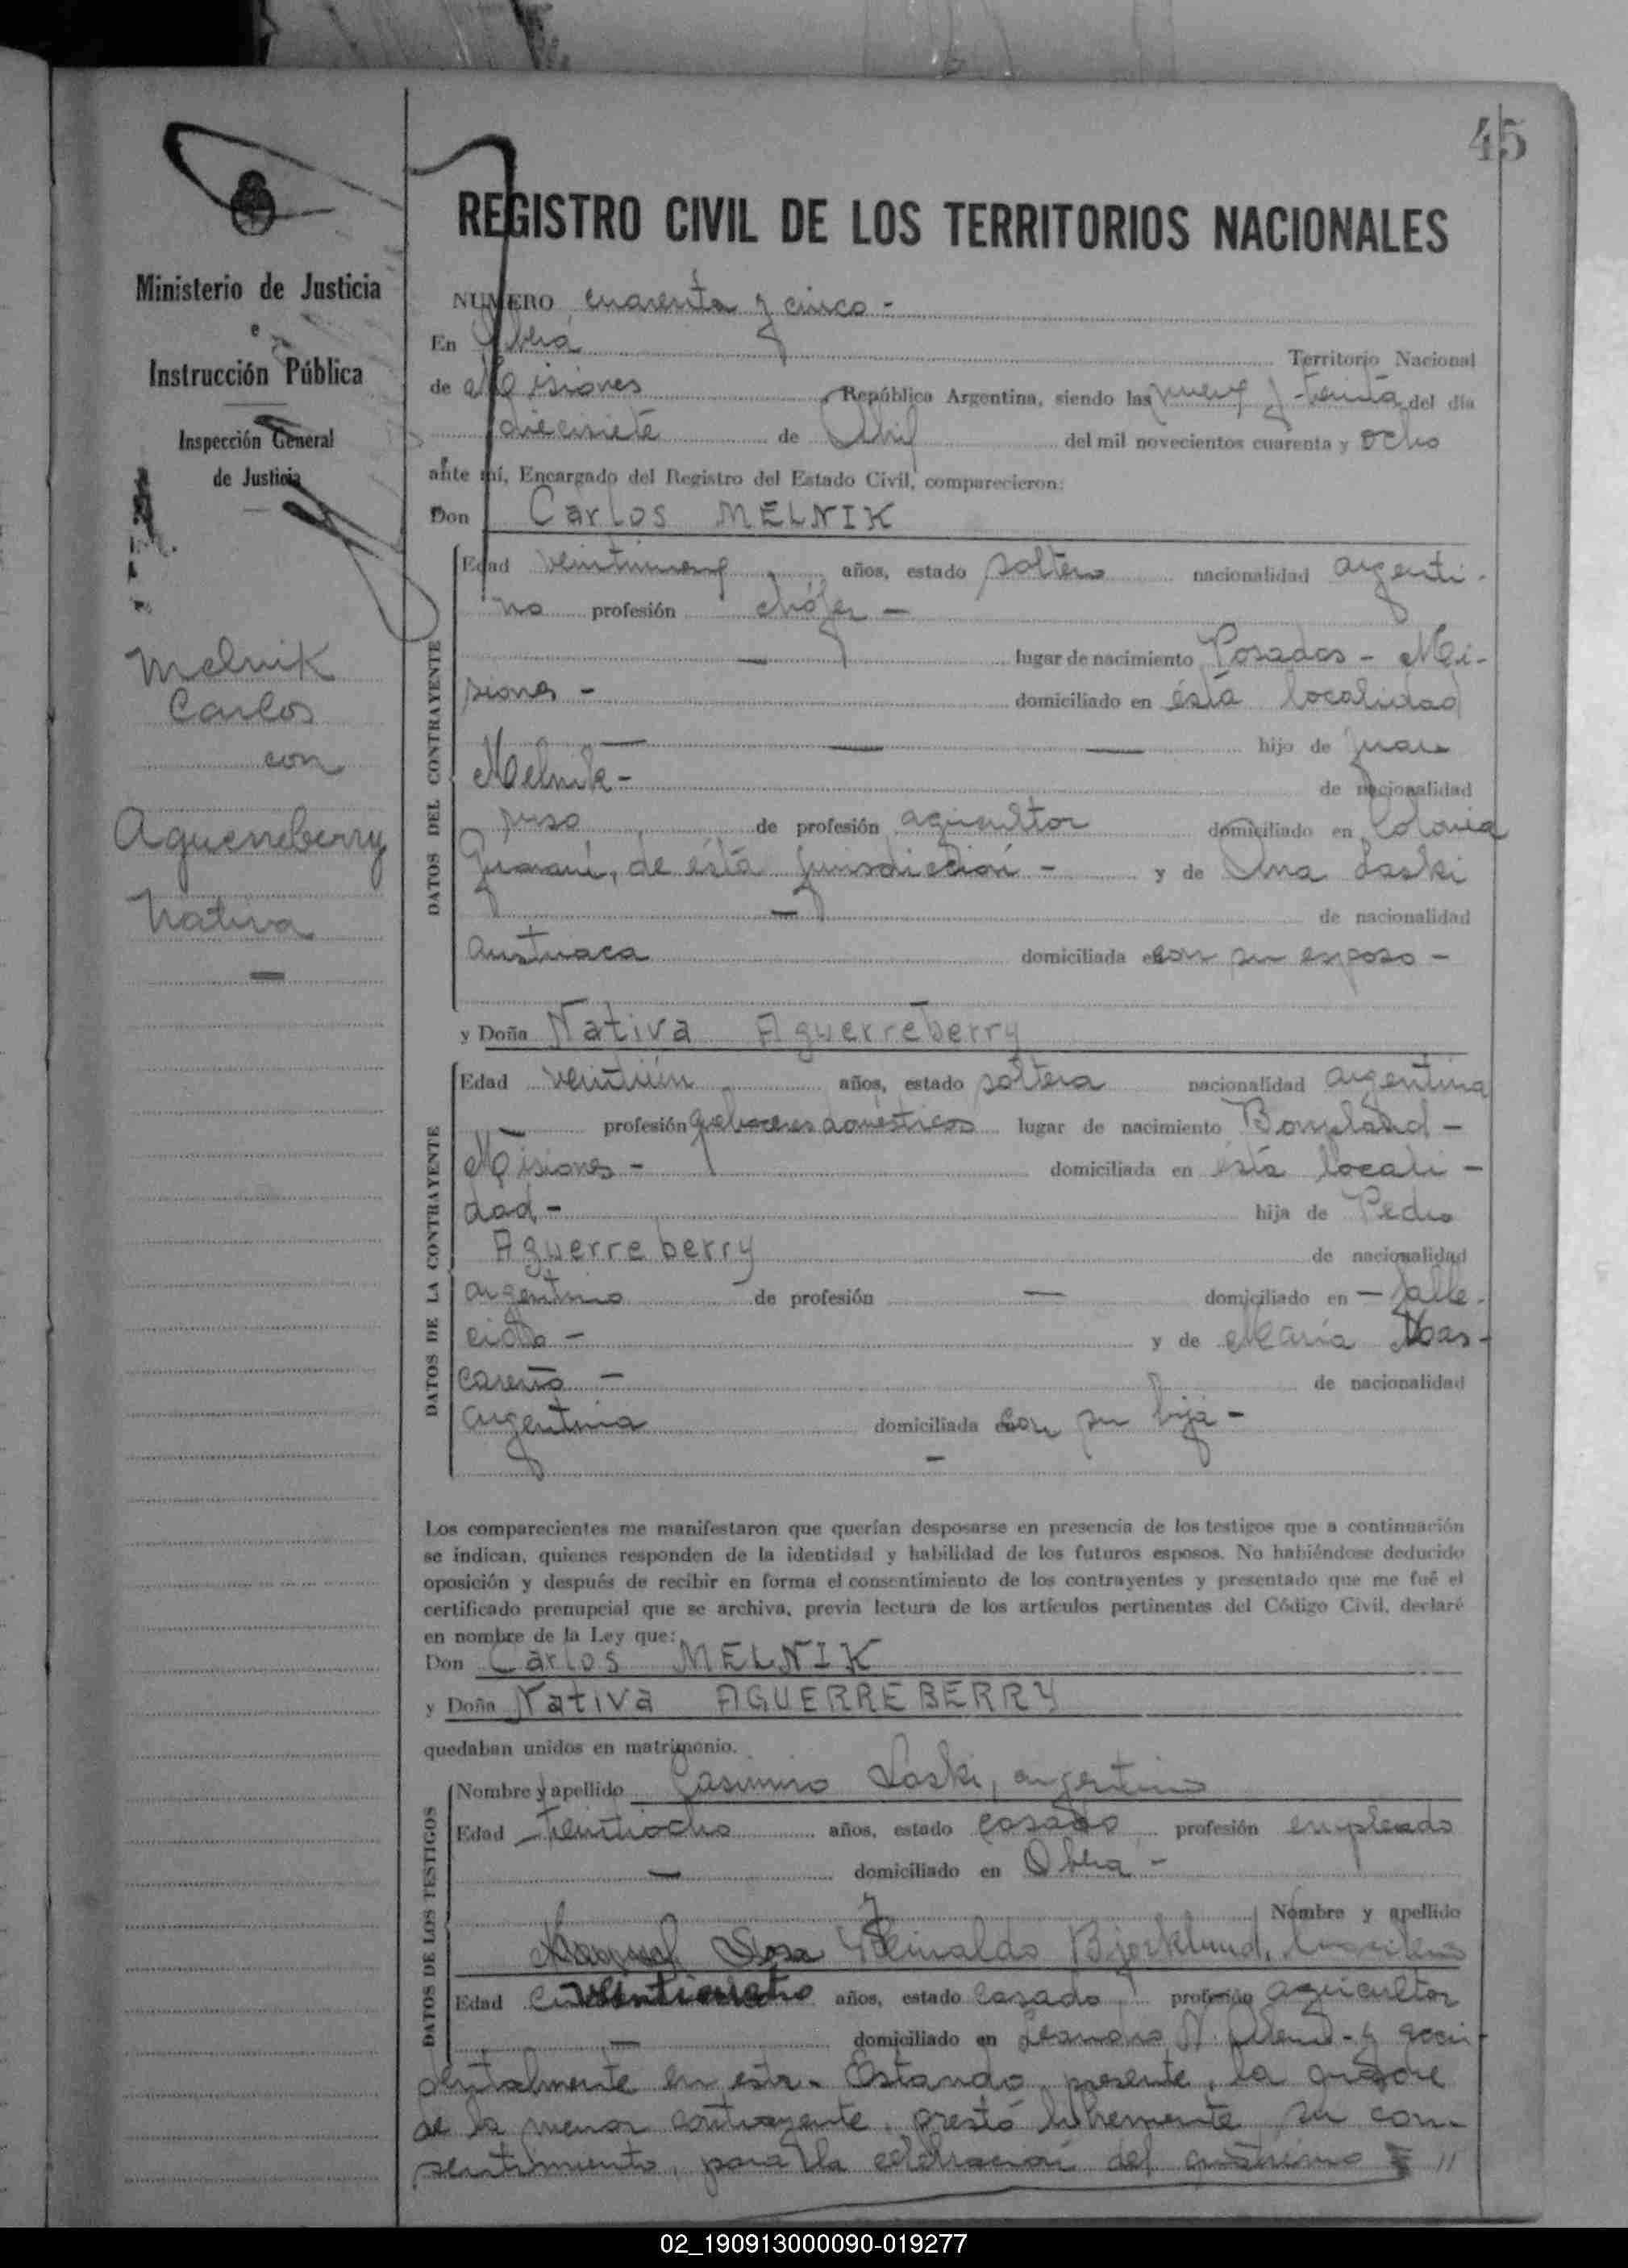 45
Ministerio de Justicia
e
Instrucción Pública
Inspección General
de Justicia
Melnik
Carlos
con
Aguerreberry
Nativa
REGISTRO CIVIL DE LOS TERRITORIOS NACIONALES
NUMERO cuarenta y cinco -
En Oberá Territorio Nacional
de Misiones República Argentina, siendo las nueve y treinta del día
diecisiete de Abril del mil novecientos cuarenta y ocho
ante mí, Encargado del Registro del Estado Civil, comparecieron:
Don Carlos MELNIK
DATOS DEL CONTRAYENTE
Edad veintinueve años, estado soltero nacionalidad argenti-
no profesión chófer -
lugar de nacimiento Posadas - Mi-
siones - domiciliado en ésta localidad
hijo de Juan
Melnik - de nacionalidad
ruso de profesión agricultor domiciliado en Colonia
Guaraní, de ésta jurisdicción - y de Ana Laski
de nacionalidad
austriaca domiciliada con su esposo -
y Doña Nativa Aguerreberry
DATOS DE LA CONTRAYENTE
Edad veintiún años, estado soltera nacionalidad argentina
profesión quehaceres domésticos lugar de nacimiento Bompland -
Misiones - domiciliada en ésta locali-
dad - hija de Pedro
Aguerreberry de nacionalidad
argentino de profesión — domiciliado en - falle-
cido - y de María Mas-
careño - de nacionalidad
argentina domiciliada con su hija -
Los comparecientes me manifestaron que querían desposarse en presencia de los testigos que a continuación
se indican, quienes responden de la identidad y habilidad de los futuros esposos. No habiéndose deducido
oposición y después de recibir en forma el consentimiento de los contrayentes y presentado que me fué el
certificado prenupcial que se archiva, previa lectura de los artículos pertinentes del Código Civil, declaré
en nombre de la Ley que:
Don Carlos MELNIK
y Doña Nativa AGUERREBERRY
quedaban unidos en matrimonio.
DATOS DE LOS TESTIGOS
Nombre y apellido Casimiro Laski, argentino
Edad veintiocho años, estado casado profesión empleado
domiciliado en Oberá -
y Nombre y apellido
Reinaldo Bjorklund,
Edad años, estado casado, profesión agricultor
domiciliado en Leandro N. Alem - y acci-
dentalmente en esta. Estando presente, la madre
de la menor contrayente, prestó libremente su con-
sentimiento, para la celebración del
02_190913000090-019277